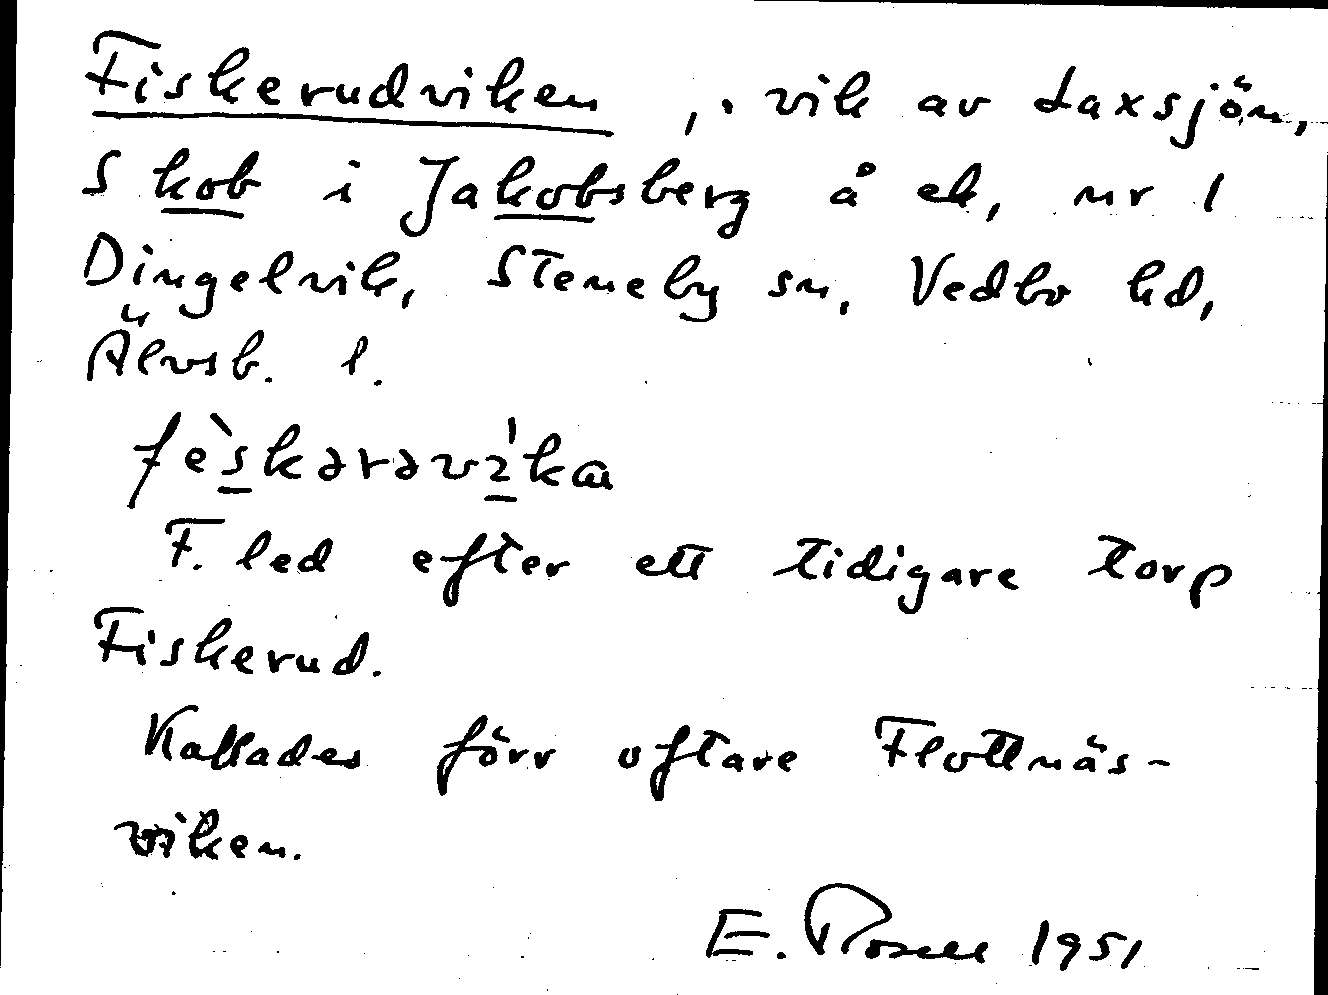 Fiskerudviken, vik av Laxsjön,
S kob i Jakobsberg å ek, nr 1
Dingelvik, Steneby sn, Vedbo hd,
Älvsb. l.
fèskəravi̍ka
F. led efter ett tidigare torp
Fiskerud.
Kallades förr oftare Flottnäs-
viken.
E. Rosell 1951